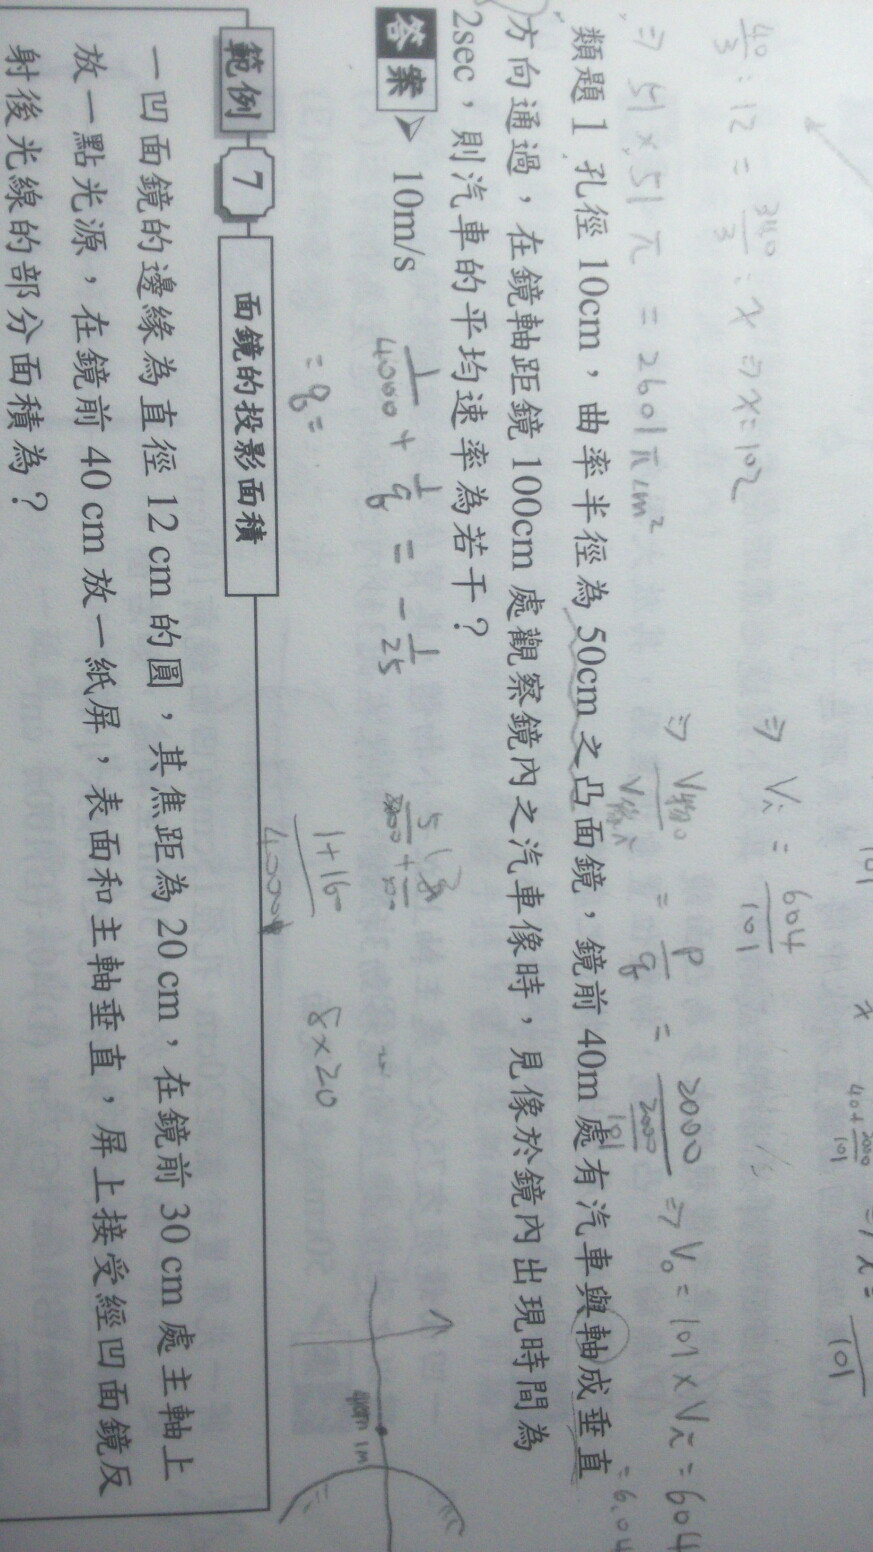 40/3 : 12 = 340/3 : x ⇒ x = 102
⇒ 51 × 51 π = 2601 π cm²
⇒ Vᵢ = 604/101
⇒ V物o = P/q = 2000/(2000/101) ⇒ Vo = 101 × Vᵢ = 604
= 6.04
類題 1 孔徑 10cm，曲率半徑為 50cm 之凸面鏡，鏡前 40m 處有汽車與軸成垂直
方向通過，在鏡軸距鏡 100cm 處觀察鏡內之汽車像時，見像於鏡內出現時間為
2sec，則汽車的平均速率為若干？
答案 ➤ 10m/s
1/4000 + 1/q = - 1/25
= q =
1+16
8×20
1m
範例 7 面鏡的投影面積
一凹面鏡的邊緣為直徑 12 cm 的圓，其焦距為 20 cm，在鏡前 30 cm 處主軸上
放一點光源，在鏡前 40 cm 放一紙屏，表面和主軸垂直，屏上接受經凹面鏡反
射後光線的部分面積為？